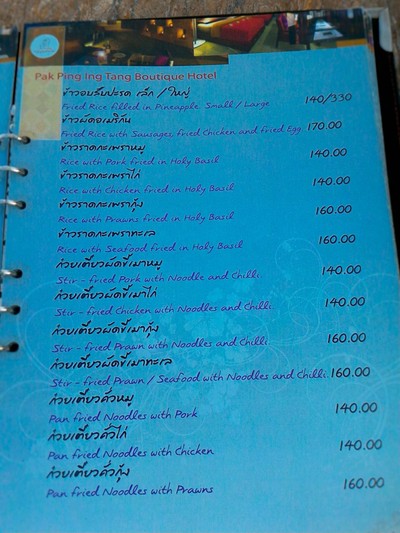 Pak Ping Ing Tang Boutique Hotel
ข้าวอบสัปปะรด เล็ก / ใหญ่
Fried Rice filled in Pineapple Small / Large 140/330
ข้าวผัดอเมริกัน
Fried Rice with Sausages, fried Chicken and fried Egg. 170.00
ข้าวราดกะเพราหมู
Rice with Pork fried in Holy Basil 140.00
ข้าวราดกะเพราไก่
Rice with Chicken fried in Holy Basil 140.00
ข้าวราดกะเพรากุ้ง
Rice with Prawns fried in Holy Basil 160.00
ข้าวราดกะเพราทะเล
Rice with Seafood fried in Holy Basil 160.00
ก๋วยเตี๋ยวผัดขี้เมาหมู
Stir - fried Pork with Noodle and Chilli 140.00
ก๋วยเตี๋ยวผัดขี้เมาไก่
Stir - fried Chicken with Noodles and Chilli. 140.00
ก๋วยเตี๋ยวผัดขี้เมากุ้ง
Stir - fried Prawn with Noodles and Chilli 160.00
ก๋วยเตี๋ยวผัดขี้เมาทะเล
Stir - fried Prawn / Seafood with Noodles and Chilli. 160.00
ก๋วยเตี๋ยวคั่วหมู
Pan fried Noodles with Pork 140.00
ก๋วยเตี๋ยวคั่วไก่
Pan fried Noodles with Chicken 140.00
ก๋วยเตี๋ยวคั่วกุ้ง
Pan fried Noodles with Prawns 160.00